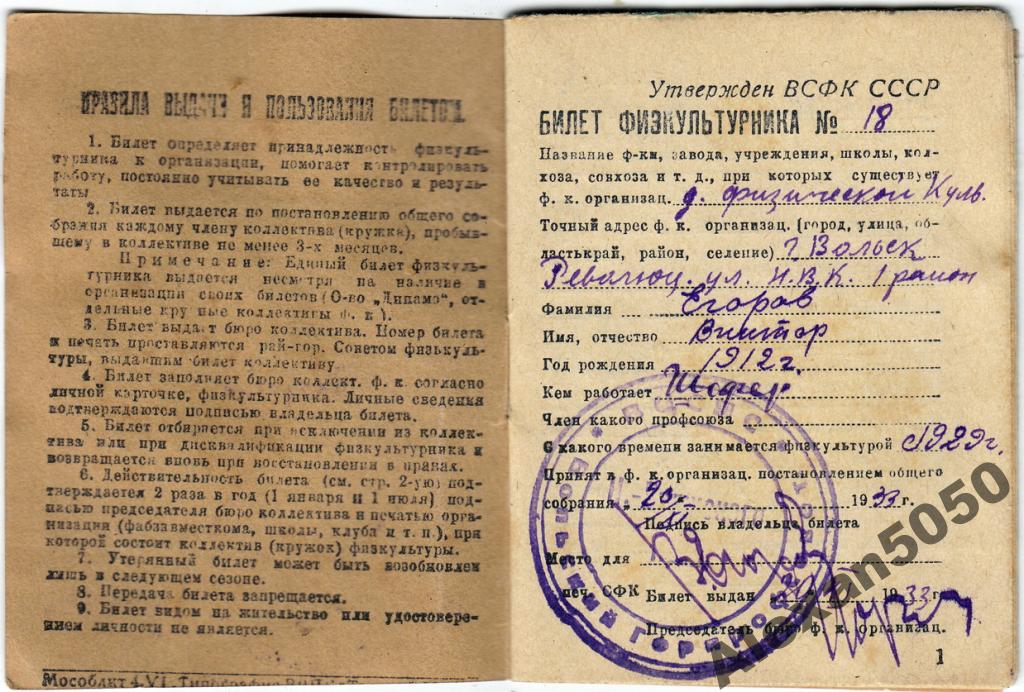 ПРАВИЛА ВЫДАЧИ И ПОЛЬЗОВАНИЯ БИЛЕТОМ.
1. Билет определяет принадлежность физкуль-
турника к организации, помогает контролировать
работу, постоянно учитывать ее качество и резуль-
таты
2. Билет выдается по постановлению общего со-
брания каждому члену коллектова (кружка), пробыв-
шему в коллективе не менее 3-х месяцев.
Примечание: Единый билет физкуль-
турника выдается несмотря на наличие в
организации своих билетов (О-во „Динамо“, от-
дельные кружные коллективы ф. к.).
3. Билет выдает бюро коллектива. Номер билета
и печать проставляются рай-гор. Советом физкуль-
туры, выдавшим билет коллективу.
4. Билет заполняет бюро коллект. ф. к. согласно
личной карточке, физкультурника. Личные сведения
подтверждаются подписью владельца билета.
5. Билет отбирается при исключении из коллек-
тива или при дисквалификации физкультурника и
возвращается вновь при восстановлении в правах.
6. Действительность билета (см. стр. 2-ую) под-
тверждается 2 раза в год (1 января и 1 июля) под-
писью председателя бюро коллектива и печатью орга-
низации (фабзавместкома, школы, клуба и т. п.), при
которой состоит коллектив (кружок) физкультуры.
7. Утерянный билет может быть возобновлен
лишь в следующем сезоне.
8. Передача билета запрещается.
9. Билет видом на жительство или удостовере-
нием личности не является.
Мособлит
Утвержден ВСФК СССР
БИЛЕТ ФИЗКУЛЬТУРНИКА № 18
Название ф-ки, завода, учреждения, школы, кол-
хоза, совхоза и т. д., при которых существует
ф. к. организац. д. физической Куль.
Точный адрес ф. к. организ. (город, улица, об-
ластькрай, район, селение) г. Вольск
Революц. ул. Н.В.К. 1 район
Фамилия Егоров
Имя, отчество Виктор
Год рождения 1912 г.
Кем работает Шофер
Член какого профсоюза
С какого времени занимается физкультурой с 1929 г.
Принят в ф. к. организац. постановлением общего
собрания „20 1933 г.
Подпись владельца билета
Место для
печ. СФК Билет выдан 1933 г.
Председатель бюро ф. к. организац.
1
Alexan5050